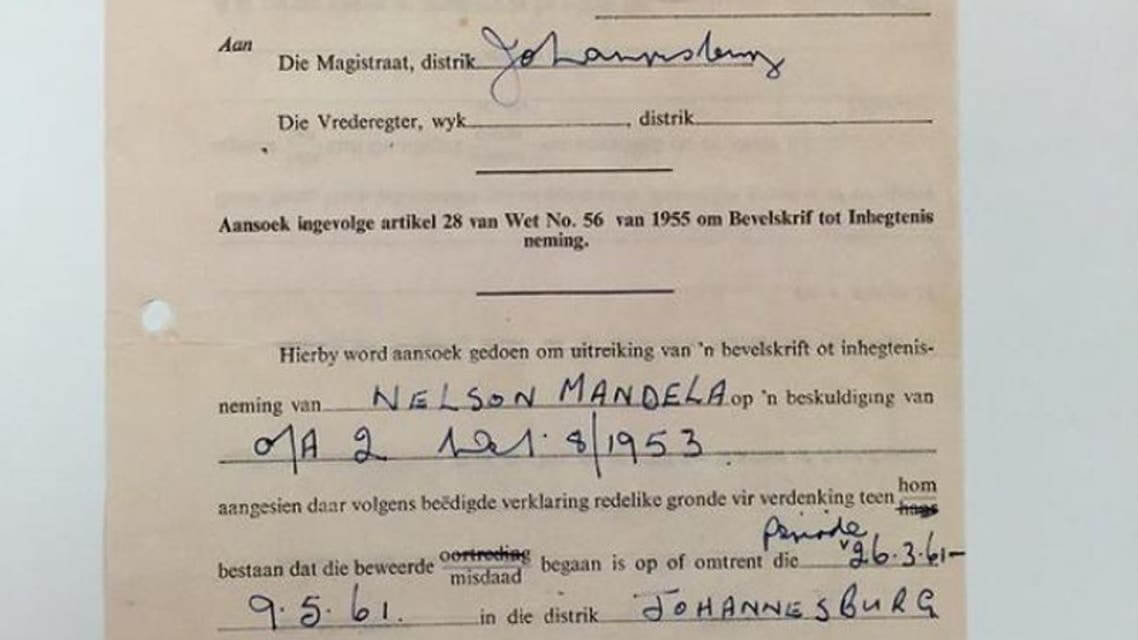 Aan
Die Magistraat, distrik Johannesburg
Die Vrederegter, wyk , distrik
Aansoek ingevolge artikel 28 van Wet No. 56 van 1955 om Bevelskrif tot Inhegtenis
neming.
Hierby word aansoek gedoen om uitreiking van 'n bevelskrift ot inhegtenis-
neming van NELSON MANDELA op 'n beskuldiging van
o/A 2 Wet 8/1953
aangesien daar volgens beëdigde verklaring redelike gronde vir verdenking teen hom
haar
periode
bestaan dat die beweerde oortreding begaan is op of omtrent die v 26.3.61-
misdaad
9.5.61. in die distrik JOHANNESBURG